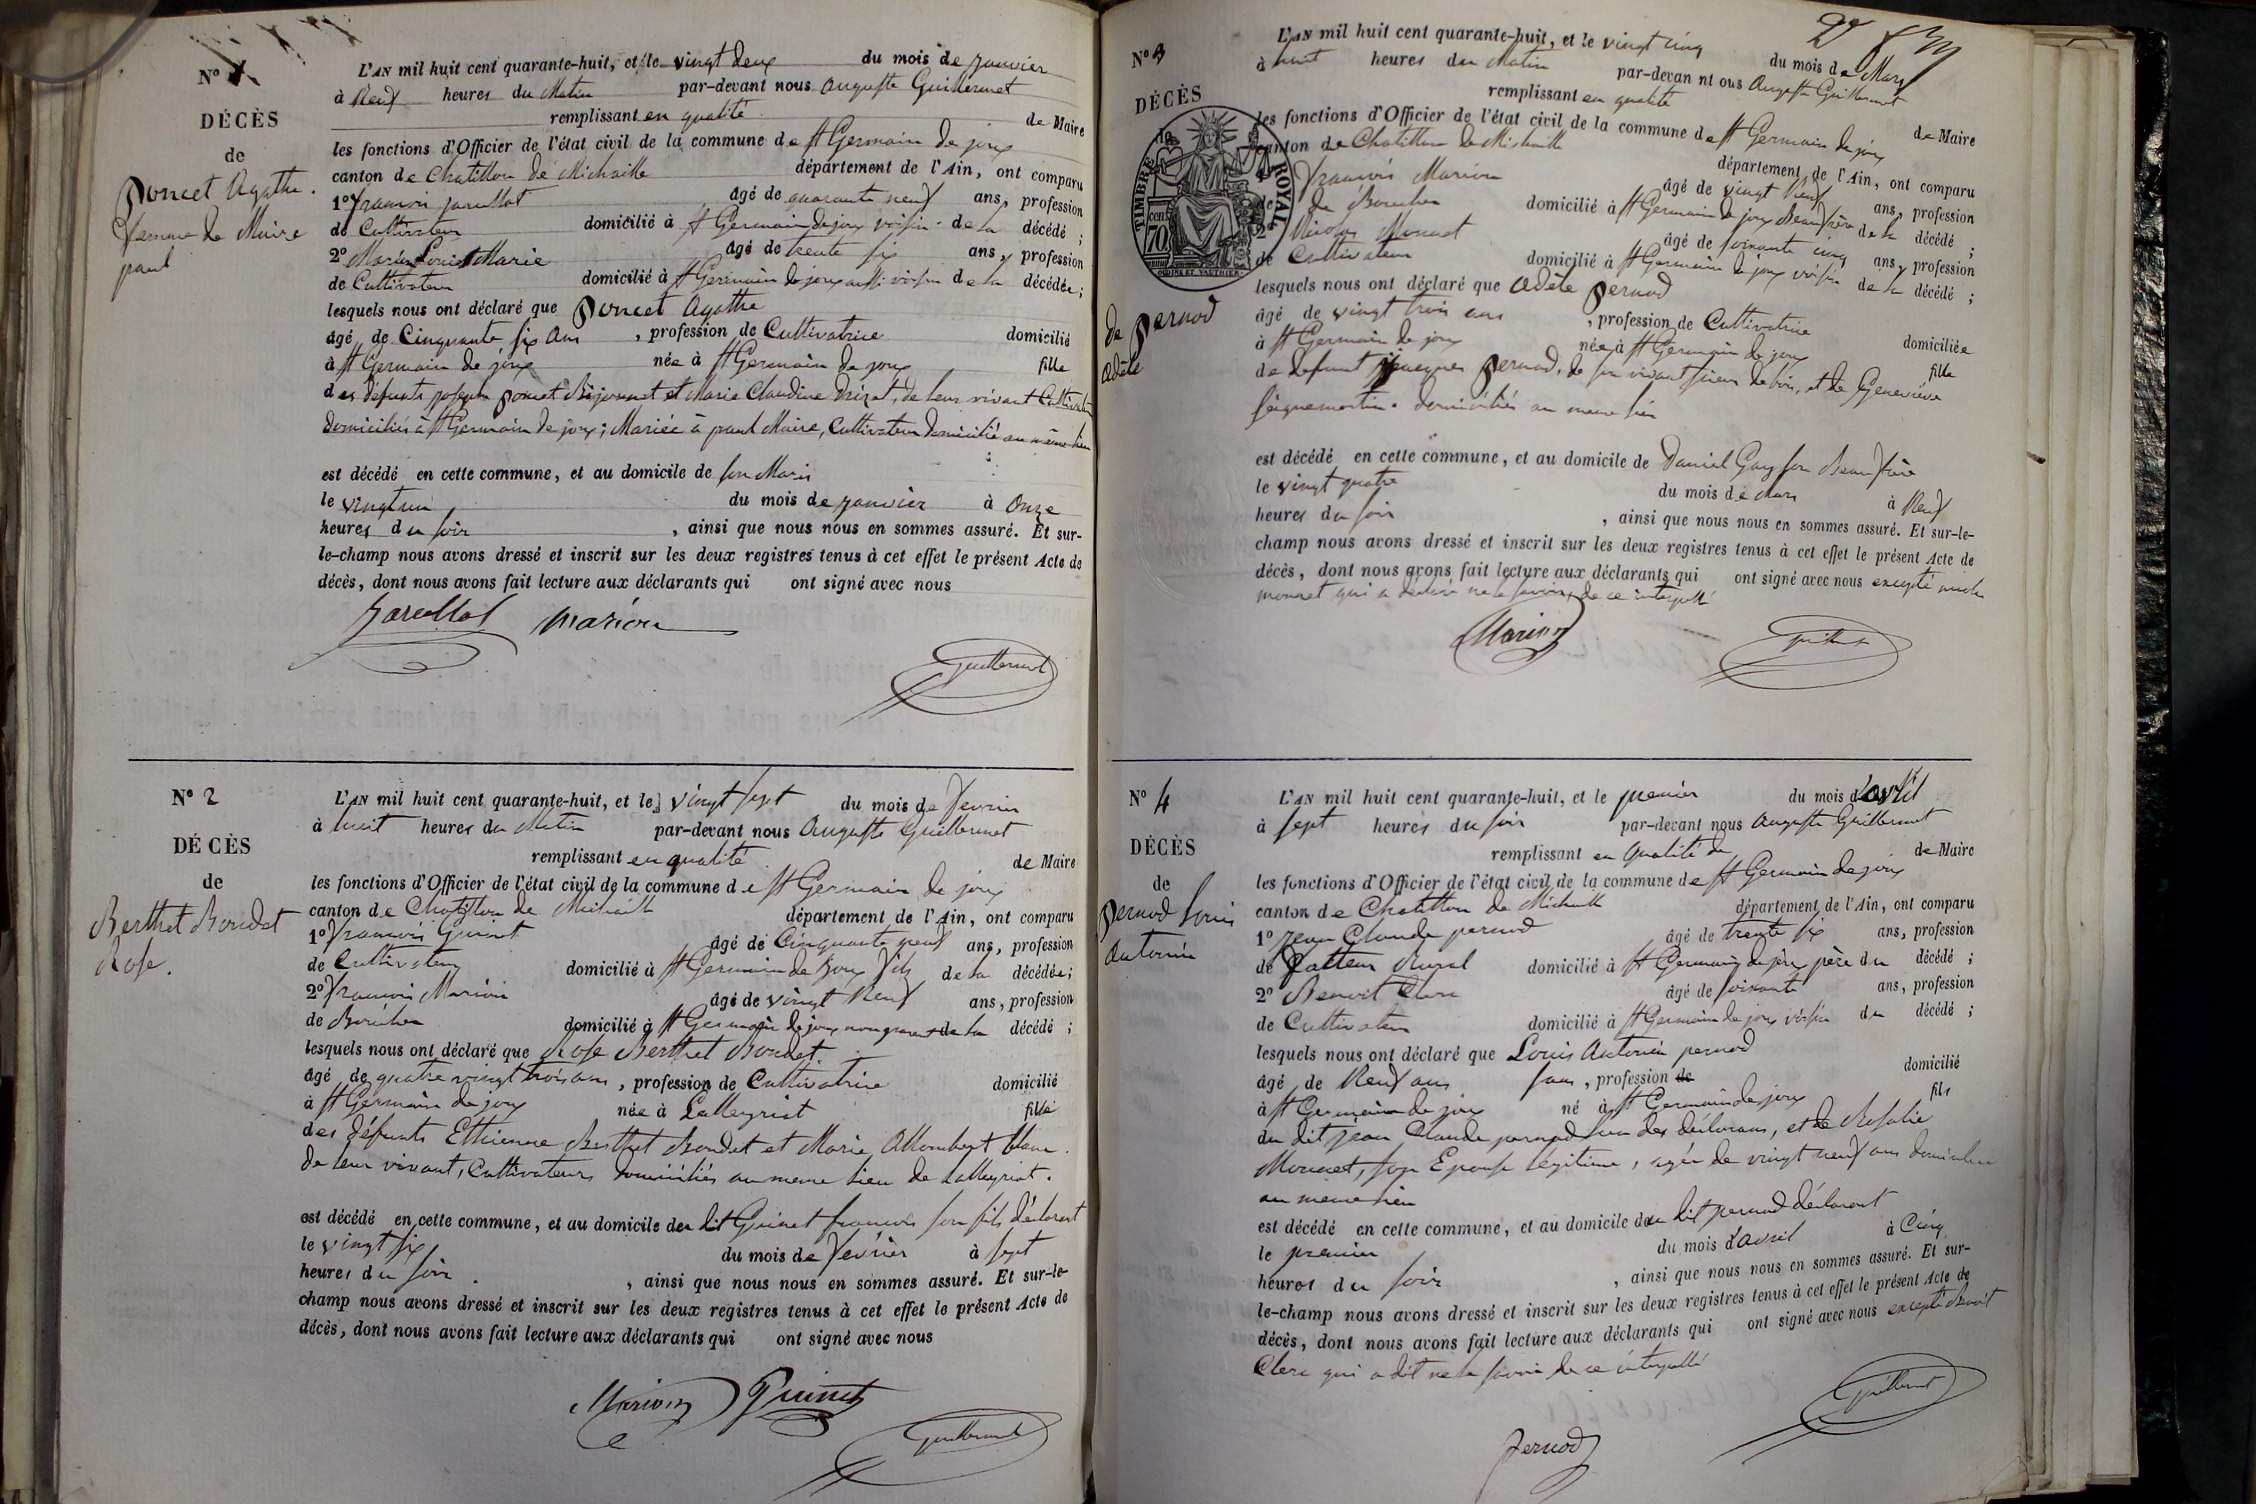 N° 1
DÉCÈS
de
Poncet Agathe.
femme de Maire
paul
L'AN mil huit cent quarante-huit, et le vingt deux du mois de janvier
à Neuf heures du Matin par-devant nous Auguste Guillermet
remplissant en qualité de Maire
les fonctions d'Officier de l'état civil de la commune de St Germain de joux
canton de Chatillon de Michaille département de l'Ain, ont comparu
1° françois jarullot âgé de quarante neuf ans, profession
de Cultivateur domicilié à St Germain de joux voisin de la décédé ;
2° Marion Louis Marie âgé de trente six ans, profession
de Cultivateur domicilié à St Germain de joux aussi voisin de la décédée ;
lesquels nous ont déclaré que Poncet Agathe
âgé de Cinquante six ans , profession de Cultivatrice domicilié
à St Germain de joux née à St Germain de joux fille
des défunts joseph Poncet et Marie Claudine de leur vivant Cultivateurs
domiciliés à St Germain de joux ; Mariée à paul Maire, Cultivateur domicilié au même lieu
est décédé en cette commune, et au domicile de son Mari
le vingt un du mois de janvier à Onze
heures du soir , ainsi que nous nous en sommes assuré. Et sur-
le-champ nous avons dressé et inscrit sur les deux registres tenus à cet effet le présent Acte de
décès, dont nous avons fait lecture aux déclarants qui ont signé avec nous
Marion
Guillermet
N° 2
DÉCÈS
de
Berthet Bondet
Rose.
L'AN mil huit cent quarante-huit, et le vingt sept du mois de fevrier
à huit heures du Matin par-devant nous Auguste Guillermet
remplissant en qualité de Maire
les fonctions d'Officier de l'état civil de la commune de St Germain de joux
canton de Chatillon de Michaille département de l'Ain, ont comparu
1° françois Guinet âgé de Cinquante neuf ans, profession
de Cultivateur domicilié à St Germain de joux fils de la décédée ;
2° françois Marion âgé de vingt Neuf ans, profession
de Boucher domicilié à St Germain de joux non parent de la décédé ;
lesquels nous ont déclaré que Rose Berthet Bondet.
âgé de quatre vingt trois ans , profession de Cultivatrice domicilié
à St Germain de joux née à Lalleyriat fille
des défunts Ethienne Berthet Bondet et Marie Allombert blanc.
de leur vivant, Cultivateurs domiciliés au meme lieu de Lalleyriat.
est décédé en cette commune, et au domicile du dit Guinet françois son fils déclarant
le vingt six du mois de fevrier à sept
heures du soir. , ainsi que nous nous en sommes assuré. Et sur-le-
champ nous avons dressé et inscrit sur les deux registres tenus à cet effet le présent Acte de
décès, dont nous avons fait lecture aux déclarants qui ont signé avec nous
Marion Guinet
Guillermet
N° 3
DÉCÈS
de
TIMBRE ROYAL
70 cen
de Pernod
Adèle
L'AN mil huit cent quarante-huit, et le vingt cinq du mois de Mars
à huit heures du Matin par-devan nt ous Auguste Guillermet
remplissant en qualité de Maire
les fonctions d'Officier de l'état civil de la commune de St Germain de joux
canton de Chatillon de Michaille département de l'Ain, ont comparu
françois Marion âgé de vingt Neuf ans, profession
de Boucher domicilié à St Germain de joux Beaufrère de la décédé ;
2° Nicolas Monnet âgé de soixante cinq ans, profession
de Cultivateur domicilié à St Germain de joux voisin de la décédé ;
lesquels nous ont déclaré que Adèle Pernod
âgé de vingt trois ans , profession de Cultivatrice domiciliée
à St Germain de joux née à St Germain de joux fille
de defunt jacques Pernod, de son vivant sieur de bois, et de Geneviève
Seignemartin domiciliés au meme lieu
est décédé en cette commune, et au domicile de Daniel Gay son Beaufrère
le vingt quatre du mois de Mars à Neuf
heures du soir , ainsi que nous nous en sommes assuré. Et sur-le-
champ nous avons dressé et inscrit sur les deux registres tenus à cet effet le présent Acte de
décès, dont nous avons fait lecture aux déclarants qui ont signé avec nous excepté
monnet qui a déclaré ne le savoir de ce interpellé
Marion
Guillermet
N° 4
DÉCÈS
de
Pernod Louis
Antonin
L'AN mil huit cent quarante-huit, et le premier du mois d'avril
à sept heures du soir par-devant nous Auguste Guillermet
remplissant en qualité de de Maire
les fonctions d'Officier de l'état civil de la commune de St Germain de joux
canton de Chatillon de Michaille département de l'Ain, ont comparu
1° jean Claude pernod âgé de trente six ans, profession
de facteur Rural domicilié à St Germain de joux père du décédé ;
2° Benoit Clerc âgé de soixante ans, profession
de Cultivateur domicilié à St Germain de joux voisin du décédé ;
lesquels nous ont déclaré que Louis Antonin pernod
âgé de Neuf ans sans , profession de domicilié
à St Germain de joux né à St Germain de joux fils
du dit jean Claude pernod l'un des déclarans, et de Rosalie
Monnet, son Epouse légitime, agée de vingt neuf ans domiciliée
au meme lieu
est décédé en cette commune, et au domicile du dit pernod déclarant
le premier du mois d'avril à Cinq
heures du soir , ainsi que nous nous en sommes assuré. Et sur-
le-champ nous avons dressé et inscrit sur les deux registres tenus à cet effet le présent Acte de
décès, dont nous avons fait lecture aux déclarants qui ont signé avec nous excepté Benoit
Clerc qui a dit ne le savoir de ce interpellé
Guillermet
Pernod